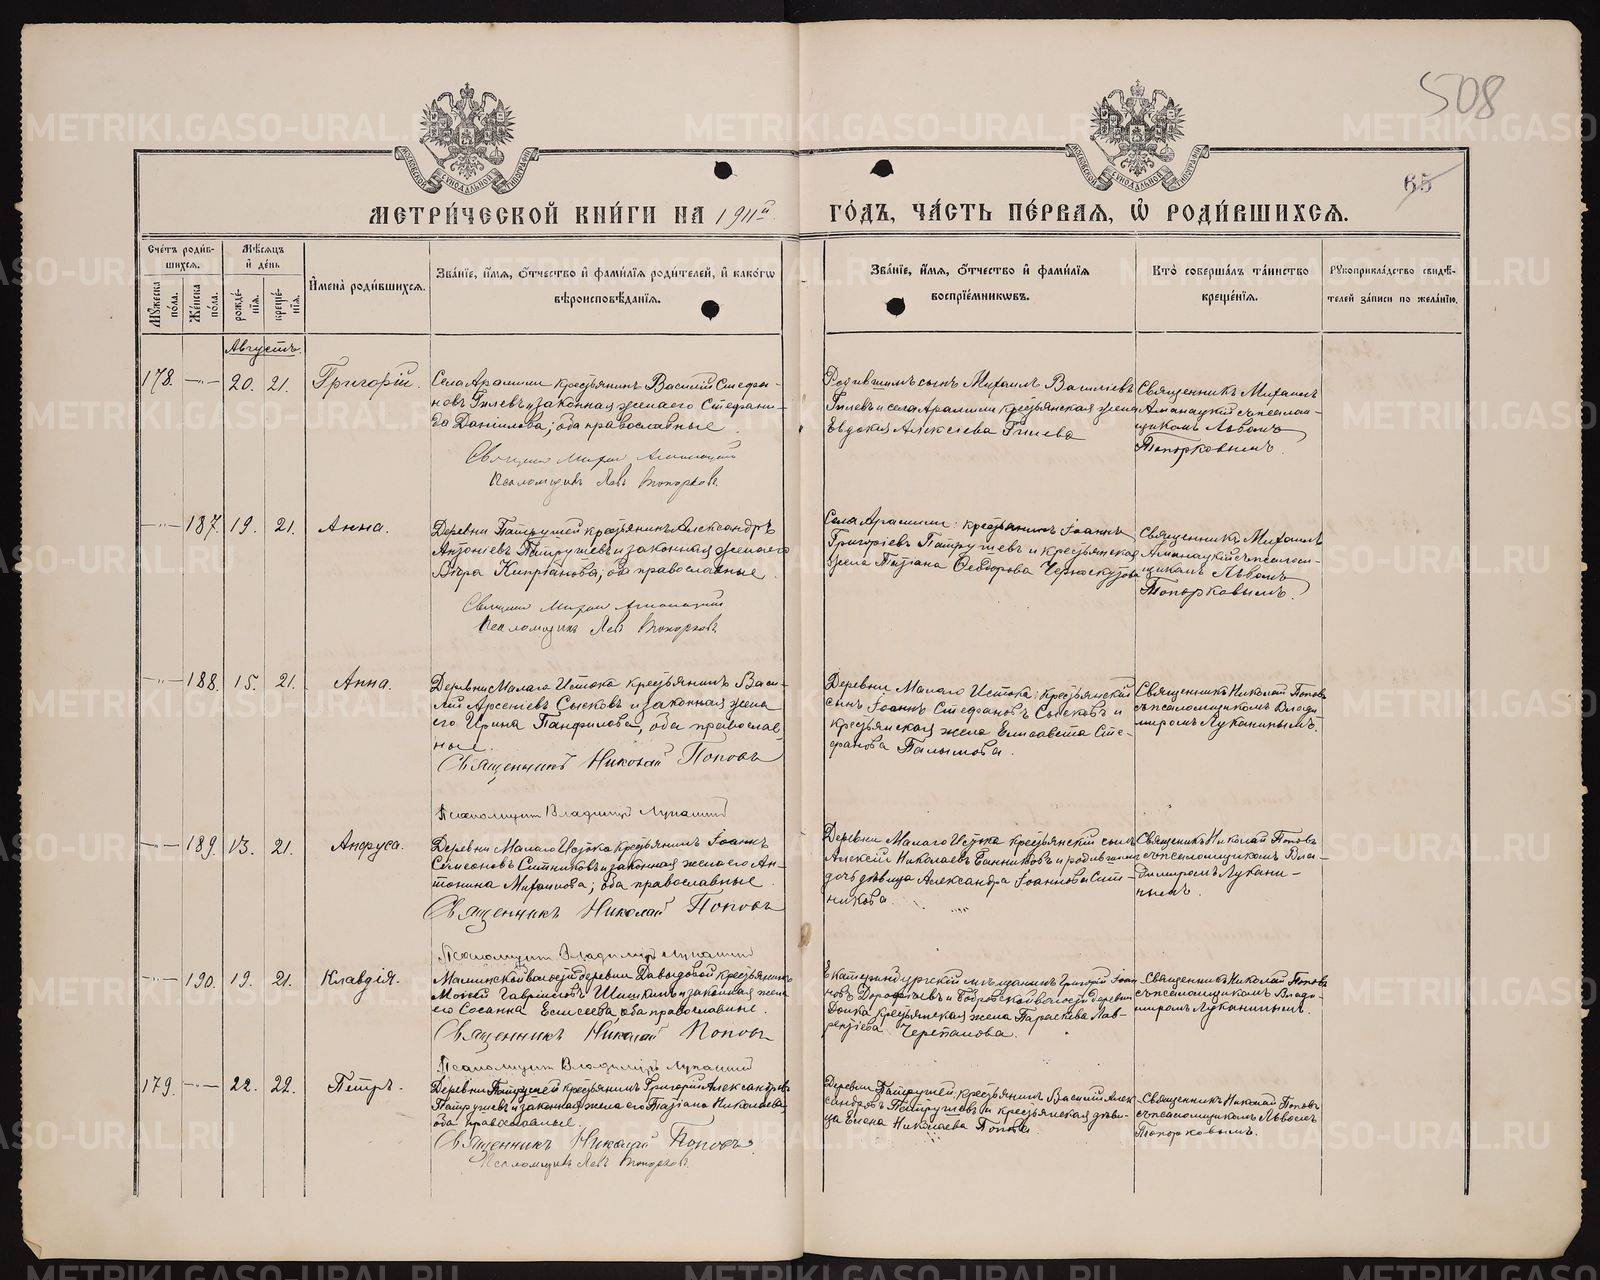 508
65
МОСКОВСКОЙ СѴНОДАЛЬНОЙ ТИПОГРАФІИ
МОСКОВСКОЙ СѴНОДАЛЬНОЙ ТИПОГРАФІИ
МЕТРИ́ЧЕСКОЙ КНИ́ГИ НА 1911й
ГО́ДЪ, ЧА́СТЬ ПЕ́РВАЯ, Ѡ҆ РОДИ́ВШИХСЯ.
Сче́тъ роди́в-
шихся.
Мѣ́сяцъ
и҆ де́нь
Мꙋ́жеска по́ла.
Же́нска по́ла.
рожде́-
нїя.
креще́-
нїя.
И҆мена̀ роди́вшихся.
Зва́нїе, и҆́мя, ѻ҆́тчество и҆ фами́лїя роди́телей, и҆ како́гѡ
вѣроисповѣ́данїя.
Зва́нїе, и҆́мя, ѻ҆́тчество и҆ фами́лїя
воспрїе́мникѡвъ.
Кто̀ соверша́лъ та́инство
креще́нїя.
Рꙋкоприкла́дство свидѣ́-
телей за́писи по жела́нїю.
Августъ.
178. —"— 20. 21. Григорій.
Села Арамили крестьянинъ Василій Стефа-
новъ Гилевъ и законная жена его Стефани-
да Данилова; оба православные.
Священникъ Михаилъ
Псаломщикъ Левъ Топорковъ
Родившимъ сынъ Михаилъ Василіевъ
Гилевъ и села Арамили крестьянская жена
Евдокія Алексѣева Гилева
Священникъ Михаилъ
съ псалом-
щикомъ Львомъ
Топорковымъ.
—"— 187. 19. 21. Анна.
Деревни Патрушей крестьянинъ Александръ
Антоніевъ Патрушевъ и законная жена его
Вѣра Кипріанова; оба православные.
Священникъ Михаилъ
Псаломщикъ Левъ Топорковъ
Села Арамили: крестьянинъ Іоаннъ
Григоріевъ Патрушевъ и крестьянская
жена Татіана Ѳеодорова
Священникъ Михаилъ
съ псалом-
щикомъ Львомъ
Топорковымъ.
—"— 188. 15. 21. Анна.
Деревни Малаго Истока крестьянинъ Васи-
лій Арсеніевъ Сысковъ и законная жена
его Ирина Панфилова, оба православ-
ные.
Священникъ Николай Поповъ
Псаломщикъ Владиміръ Луканинъ
Деревни Малаго Истока: крестьянскій
сынъ Іоаннъ Стефановъ Сысковъ и
крестьянская жена Елисавета Сте-
фанова Палымова.
Священникъ Николай Поповъ
съ псаломщикомъ Влади-
міромъ Луканинымъ.
—"— 189. 13. 21. Анфуса.
Деревни Малаго Истока крестьянинъ Іоаннъ
Симеоновъ Ситниковъ и законная жена его Ан-
тонина Михаилова; оба православные.
Священникъ Николай Поповъ
Псаломщикъ Владиміръ Луканинъ
Деревни Малаго Истока крестьянскій сынъ
Алексій Николаевъ Банниковъ и родившимъ
дочь дѣвица Александра Іоаннова Сит-
никова.
Священникъ Николай Поповъ
съ псаломщикомъ Вла-
диміромъ Лукани-
нымъ.
—"— 190. 19. 21. Клавдія.
волости деревни Давыдовой крестьянинъ
Моисей Гавріиловъ Шишкинъ и законная жена
его Сосанна Елисеева оба православные.
Священникъ Николай Поповъ
Псаломщикъ Владиміръ Луканинъ
Екатеринбургскій мѣщанинъ Григорій Іоан-
новъ Дорофѣевъ и Бобровской волости деревни
крестьянская жена Параскева Лав-
рентіева Черепанова.
Священникъ Николай Поповъ
съ псаломщикомъ Влади-
міромъ Луканинымъ.
179. —"— 22. 22. Петръ.
Деревни Патрушей крестьянинъ Григорій Александровъ
Патрушевъ и законная жена его Татіана Николаева,
оба православные
Священникъ Николай Поповъ.
Псаломщикъ Левъ Топорковъ.
Деревни Патрушей: крестьянинъ Василій Алек-
сандровъ Патрушевъ и крестьянская дѣви-
ца Елена Николаева Попова.
Священникъ Николай Поповъ
съ псаломщикомъ Львомъ
Топорковымъ.
METRIKI.GASO-URAL.RU